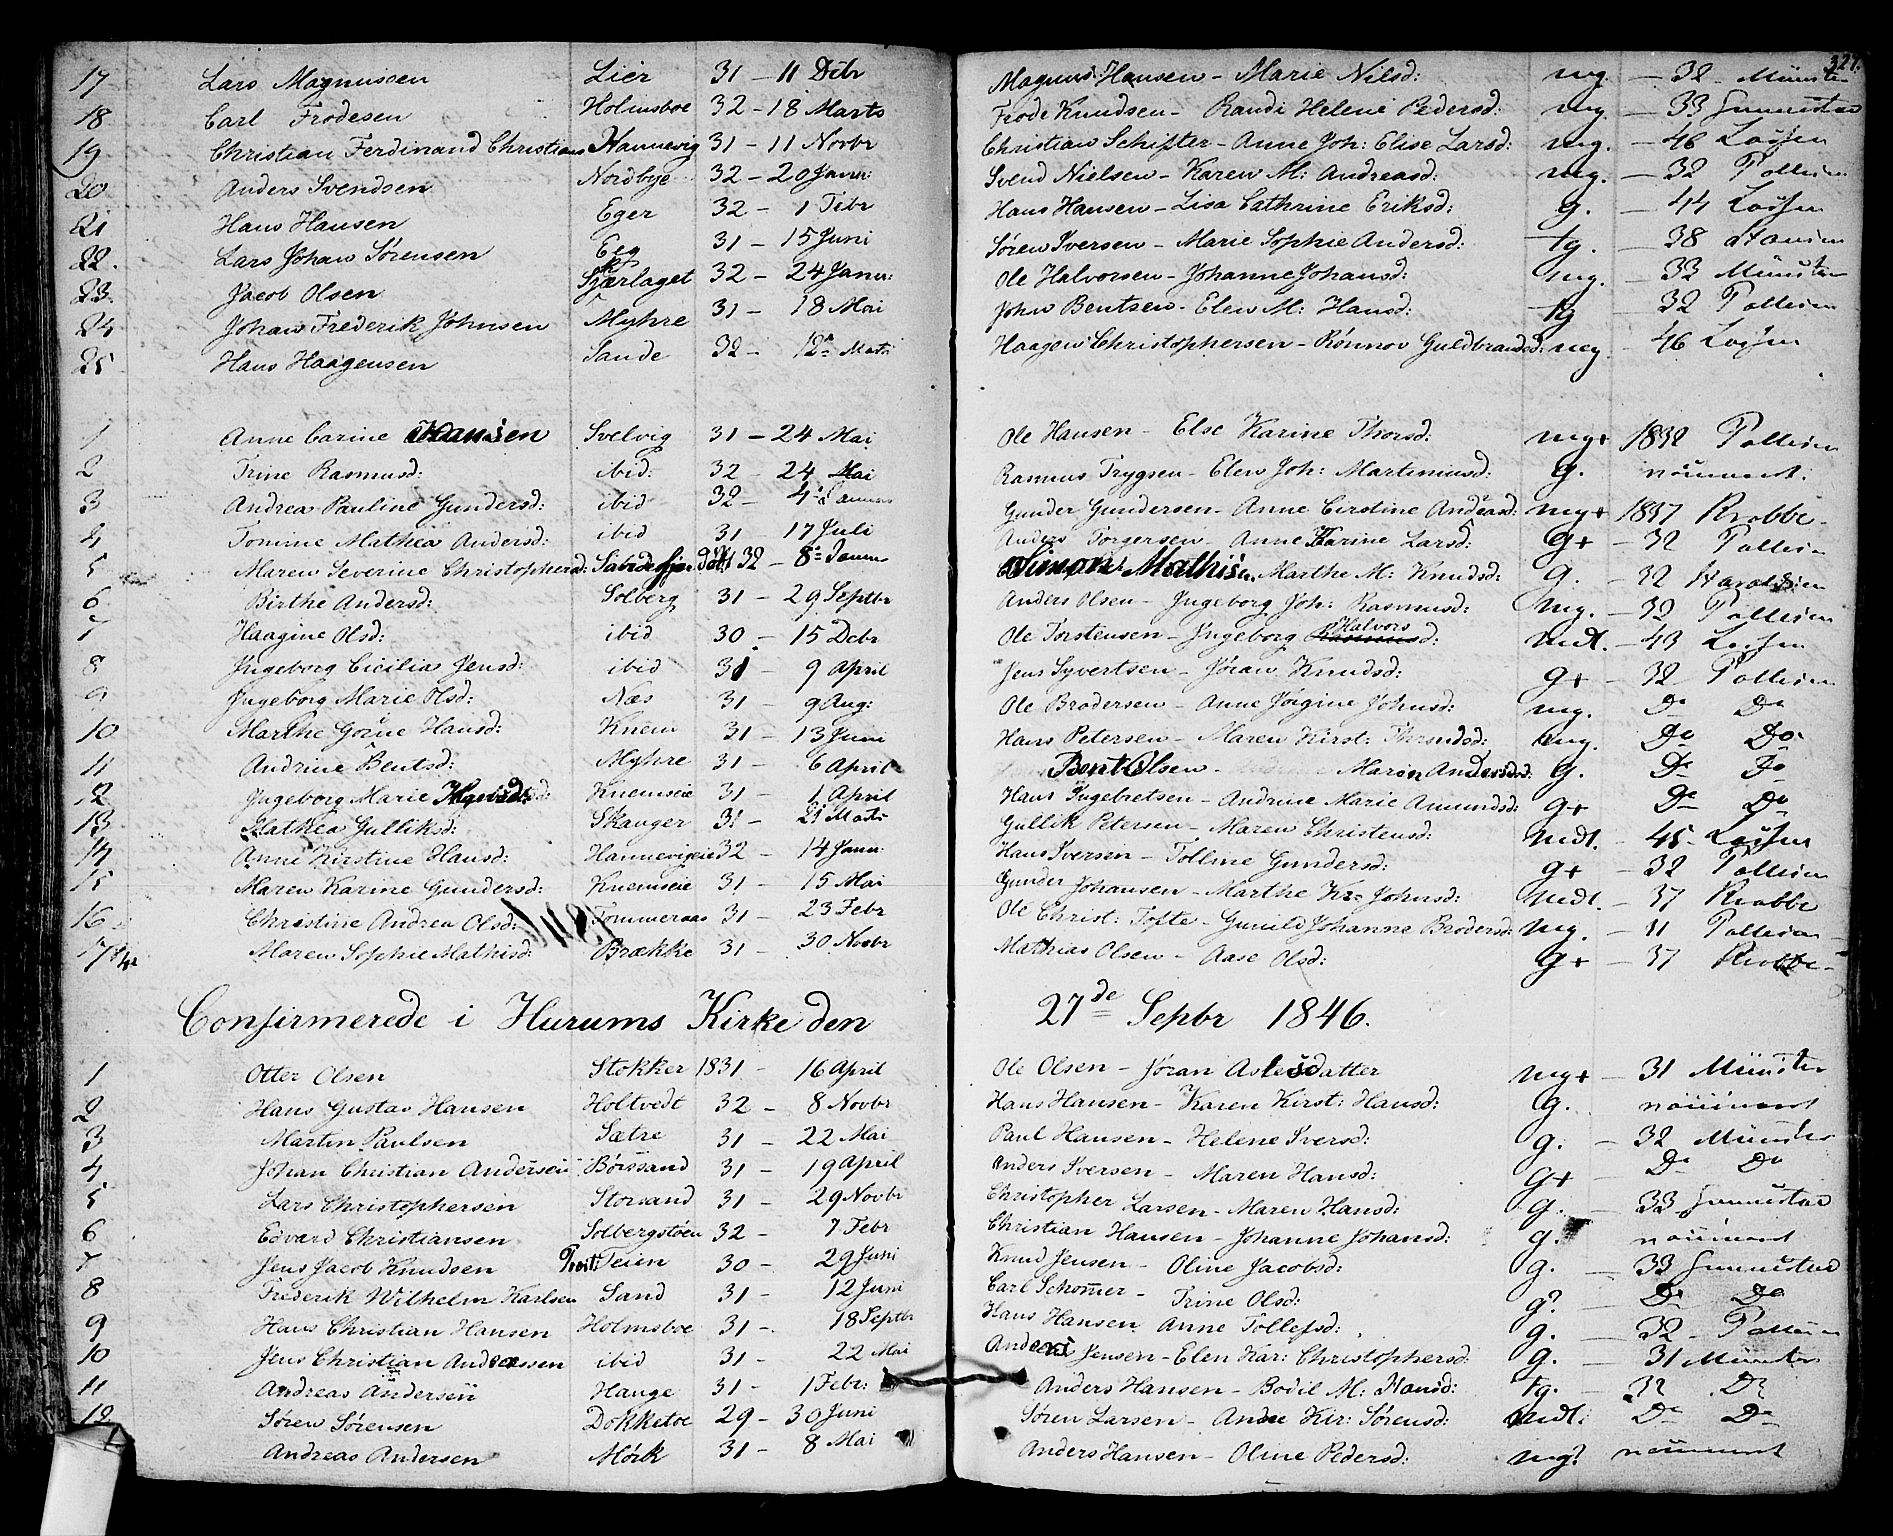 327.
17 Lars Magnussen Lier 31 – 11 Debr Magnus Hansen – Marie Nilsd: mg. – 32 – Münster
18 Carl Frodesen Holmsboe 32 – 18 Marts Frode Knudsen – Randi Helene Pedersd: mg. – 33
19 Christian Ferdinand Christians Hannevig 31 – 11 Novbr Christian Schifter – Anne Joh: Elise Larsd: mg. – 46
20 Anders Svendsen Nordbye 32 – 20 Janu: Svend Nielsen – Karen M: Andreasd: mg. – 32
21 Hans Hansen Eger 32 – 1 Febr Hans Hansen – Lisa Cathrine Eriksd: g. – 44
22. Lars Johan Sørensen 31 – 15 Juni Søren Iversen – Marie Sophie Andersd: tg. – 38
23. Jacob Olsen 32 – 24 Janu: Ole Halvorsen – Johanne Johansd: mg. – 33 Münster
24 Johan Frederik Johnsen Myhre 31 – 18 Mai John Bentsen – Elen M: Hansd: tg – 32
25 Hans Haagensen Sande 32 – 12 Marts Haagen Christophersen – Rønnov Guldbrandsd: mg – 46
1 Anne Carine Hansen Svelvig 31 – 24 Mai Ole Hansen Else Karine Thorsd: mg+ 1832
2 Trine Rasmusd: ibid: 32 – 24 Mai Rasmus Trygsen – Elen Joh: Martinusd: g.
3 Andrea Pauline Gundersd: ibid 32 – 4 Gunder Gundersen – Anne Cirstine Andersd: mg+ 1837 Krabbe
4 Tomine Mathea Andersd: ibid 31 17 Juli Anders Torgersen – Anne Karine Larsd: g+ – 32
5 Maren Severine Christophersd: 32 – 8 Simon Mathisen, Marthe M: Knudsd: g. – 32
6 Birthe Andersd: Solberg 31 – 29 Septbr Anders Olsen – Ingeborg Joh: Rasmusd: mg. – 32
7 Haagine Olsd: ibid 30 – 15 Debr Ole Torstensen – Ingeborg Halvorsd: mdt. – 43
8 Ingeborg Cicilia Jensd: ibid 31 – 9 April Jens Syvertsen – Jøran Knudsd: g+ – 32
9 Ingeborg Marie Olsd: Næs 31 – 9 Aug: Ole Brodersen – Anne Jørgine Johnsd: mg. Do Do
10 Marthe Gorine Hansd: Knem 31 – 13 Juni Hans Petersen – Maren Kirst: mg. Do Do
11 Andrine Bentsd: Myhre 31 – 6 April Bent Olsen – Maren Andersd: g. Do Do
12 Ingeborg Marie Knemseie 31 – 1 April Hans Ingebretsen – Andrine Marie Amundsd: g+ Do Do
13 Mathea Gulliksd: Skanger 31 – 21 Marts Gullik Petersen – Maren Christensd: mdt. – 45
14 Anne Kirstine Hansd: Hannevigeie 32 – 14 Janu: Hans Iversen – Tolline Gundersd: g+ – 32
15 Maren Karine Gundersd: Knemseie 31 – 15 Mai Gunder Johansen – Marthe Kr: Johnsd: mdt. – 37 Krabbe
16 Christine Andrea Olsd: Tommeraas 31 – 23 Febr Ole Christ: Tofte – Gunild Johanne Brodersd: mg. – 11
17 Maren Sophie Mathisd: Brække 31 – 30 Novbr Mathias Olsen – Aase Olsd: g+ – 37 Krabbe
Confirmerede i Hurums Kirke den 27de Sepbr 1846.
1 Otter Olsen Stokker 1831 – 16 April Ole Olsen – Jøran Aslesdatter mg+ – 31 Münster
2 Hans Gustav Hansen Holtvedt 32 – 8 Novbr Hans Hansen – Karen Kirst: Hansd: g.
3 Martin Paulsen Sætre 31 – 22 Mai Paul Hansen – Helene Iversd: g. – 32 Münster
4 Johan Christian Andersen Børssand 31 – 19 April Anders Iversen – Maren Hansd: g+ – Do Do
5 Lars Christophersen Storsand 31 – 29 Novbr Christopher Larsen – Maren Hansd: g. – 33
6 Edvard Christiansen Solbergstøen 32 – 7 Febr Christian Hansen – Johanne Johansd: g.
7 Jens Jacob Knudsen Prest:Teien 30 – 29 Juni Knud Jensen – Oline Jacobsd: g. – 33
8 Frederik Wilhelm Karlsen Sand 31 – 12 Juni Carl Schømer – Trine Olsd: g? – Do Do
9 Hans Christian Hansen Holmsboe 31 – 18 Septbr Hans Hansen Anne Tollefsd: g. – 32
10 Jens Christian Andreassen ibid 31 – 22 Mai Anders Jensen – Elen Kar: Christophersd: g. – 31 Münster
11 Andreas Andersen Hauge 31 – 1 Febr: Anders Hansen – Bodil M: Hansd: tg. – 32 Do
12 Søren Sørensen Dokketoe 29 – 30 Juni Søren Larsen – Anne Kir: Sørensd: mdt: – Do Do
Andreas Andersen Mørk 31 – 8 Mai Anders Hansen – Oline Pedersd: mg?